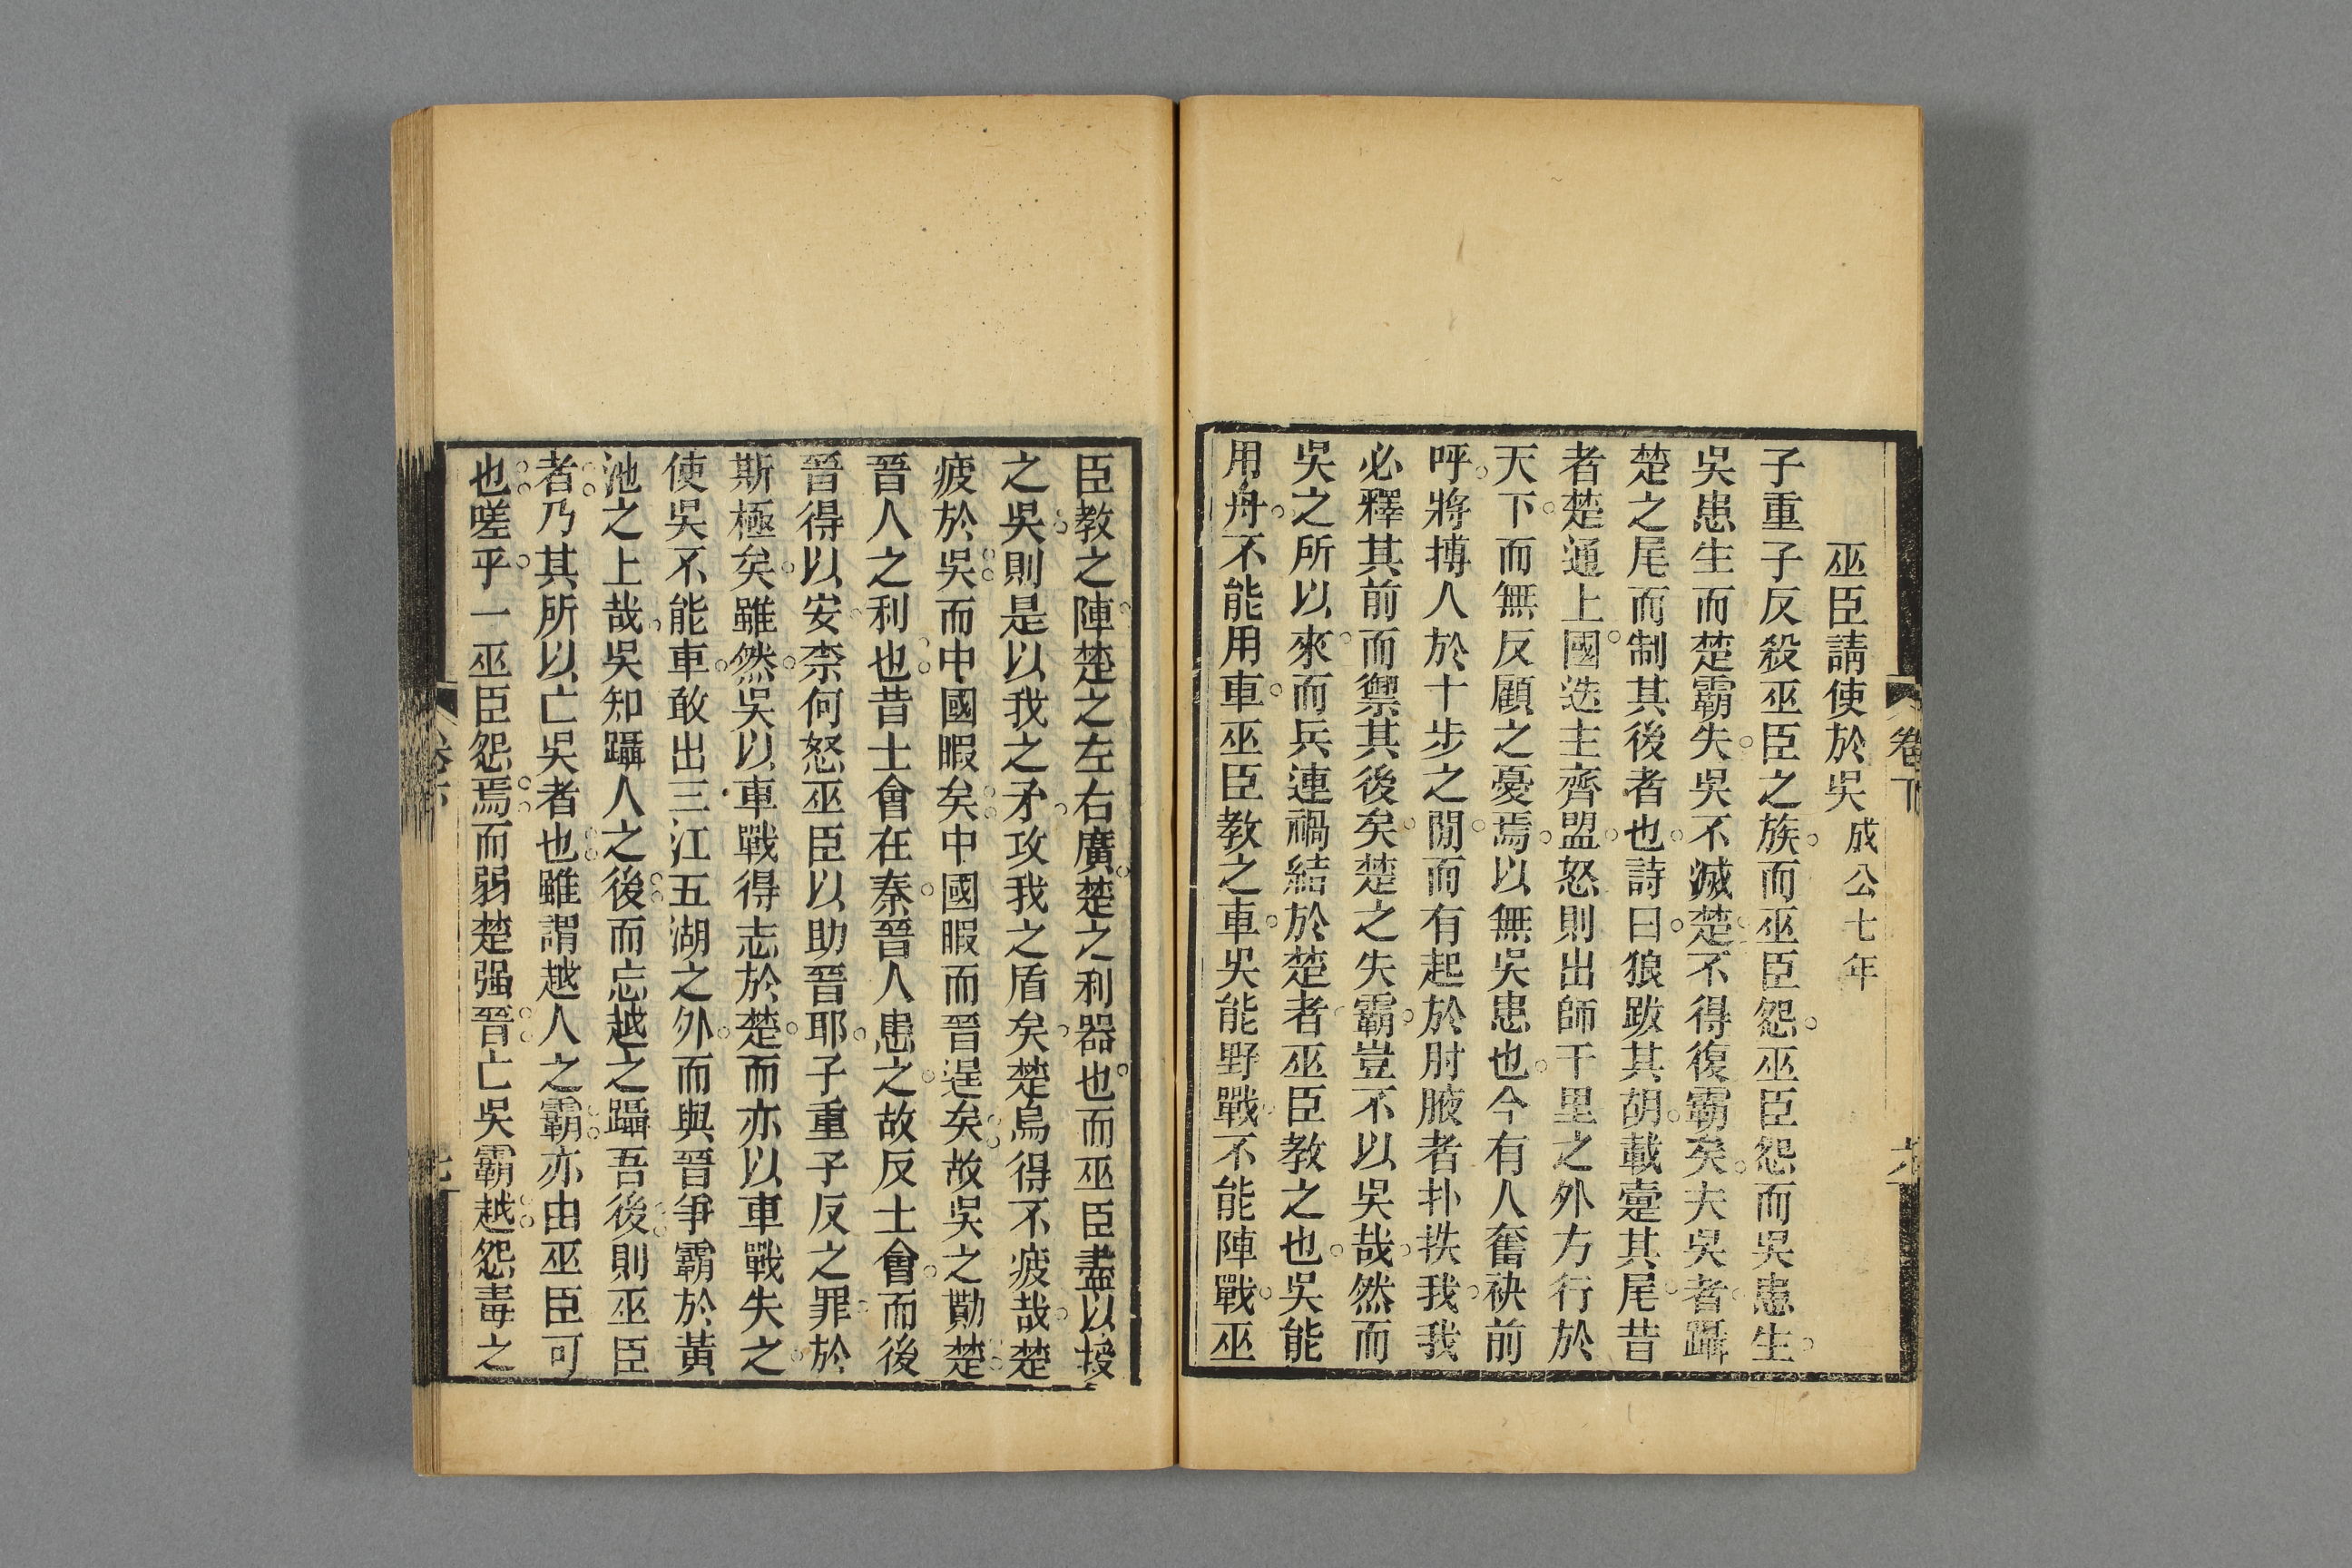 卷下
巫臣請使於吳 成公七年
子重子反殺巫臣之族而巫臣怨巫臣怨而吳患生
吳患生而楚霸失吳不滅楚不得復霸矣夫吳者躡
楚之尾而制其後者也詩曰狼跋其胡載疐其尾昔
者楚通上國迭主齊盟怒則出師千里之外方行於
天下而無反顧之憂焉以無吳患也今有人奮袂前
呼將搏人於十步之閒而有起於肘腋者扑抶我我
必釋其前而禦其後矣楚之失霸豈不以吳哉然而
吳之所以來而兵連禍結於楚者巫臣教之也吳能
用舟不能用車巫臣教之車吳能野戰不能陣戰巫
臣教之陣楚之左右廣楚之利器也而巫臣盡以授
之吳則是以我之矛攻我之盾矣楚烏得不疲哉楚
疲於吳而中國暇矣中國暇而晉逞矣故吳之勩楚
晉人之利也昔士會在秦晉人患之故反士會而後
晉得以安柰何怒巫臣以助晉耶子重子反之罪於
斯極矣雖然吳以車戰得志於楚而亦以車戰失之
使吳不能車敢出三江五湖之外而與晉爭霸於黃
池之上哉吳知躡人之後而忘越之躡吾後則巫臣
者乃其所以亡吳者也雖謂越人之霸亦由巫臣可
也嗟乎一巫臣怨焉而弱楚强晉亡吳霸越怨毒之